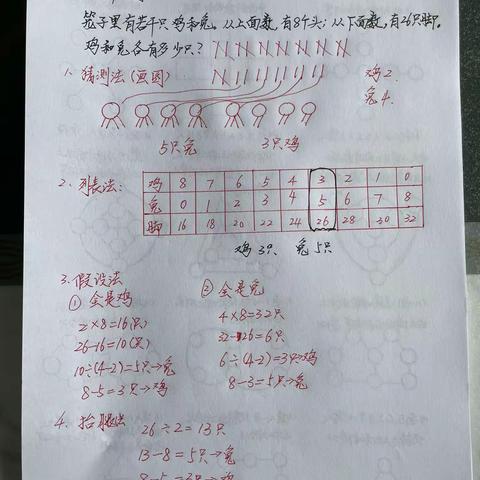 笼子里有若干只鸡和兔。从上面数,有8个头;从下面数,有26只脚。
鸡和兔各有多少只?
1、猜测法(画图)
鸡2.
兔4.
5只兔 3只鸡
2、列表法:
鸡 8 7 6 5 4 3 2 1 0
兔 0 1 2 3 4 5 6 7 8
脚 16 18 20 22 24 26 28 30 32
鸡3只 兔5只
3、假设法
① 全是鸡
2×8=16(只)
26-16=10(只)
10÷(4-2)=5只→兔
8-5=3只→鸡
② 全是兔
4×8=32只
32-26=6只
6÷(4-2)=3只→鸡
8-3=5只→兔
4、抬腿法
26÷2=13只
13-8=5只→兔
8-5=3只→鸡